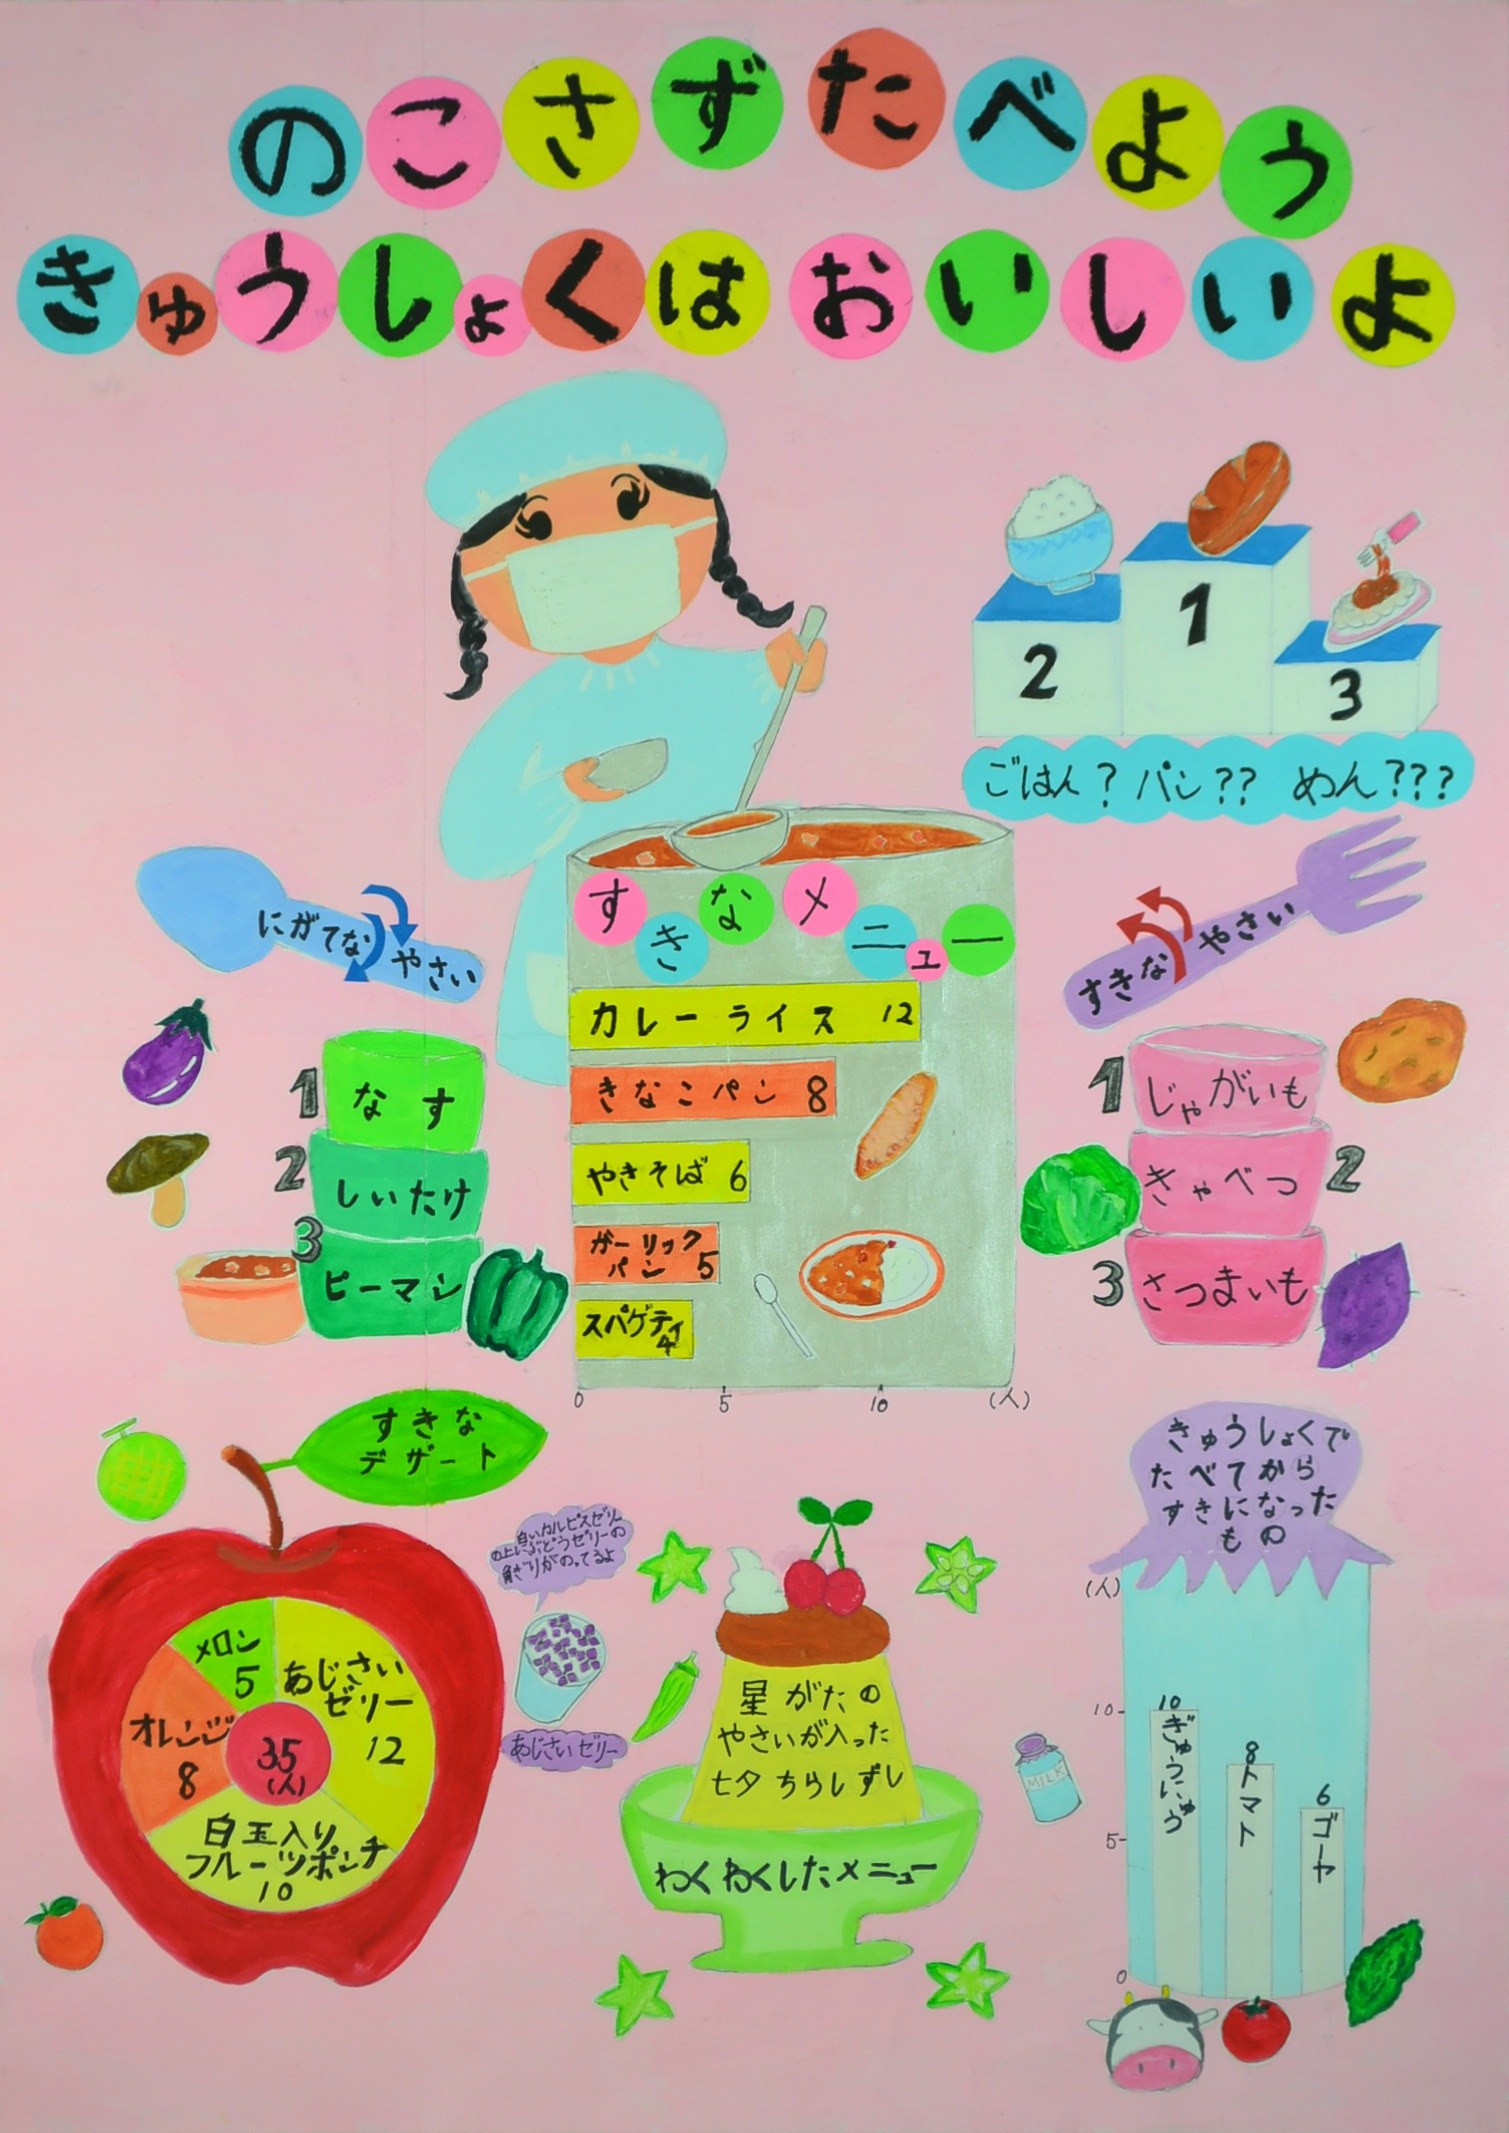 のこさずたべよう
きゅうしょくは おいしいよ
2
1
3
ごはん? パン?? めん???
にがてな やさい
1
なす
2
しいたけ
3
ピーマン
すきなメニュー
カレーライス 12
きなこパン 8
やきそば 6
ガーリック
パン 5
スパゲティ
4
0 5 10 (人)
すきな やさい
1
じゃがいも
2
きゃべつ
3
さつまいも
すきな
デザート
メロン
5
あじさい
ゼリー
12
オレンジ
8
白玉入り
フルーツポンチ
10
35
(人)
白いカルピスゼリー
の上にぶどうゼリーの
角ぎりがのってるよ
あじさいゼリー
星がたの
やさいが入った
七夕ちらしずし
わくわくしたメニュー
きゅうしょくで
たべてから
すきになった
もの
(人)
10
5
0
10
ぎゅうにゅう
8
トマト
6
ゴーヤ
MILK